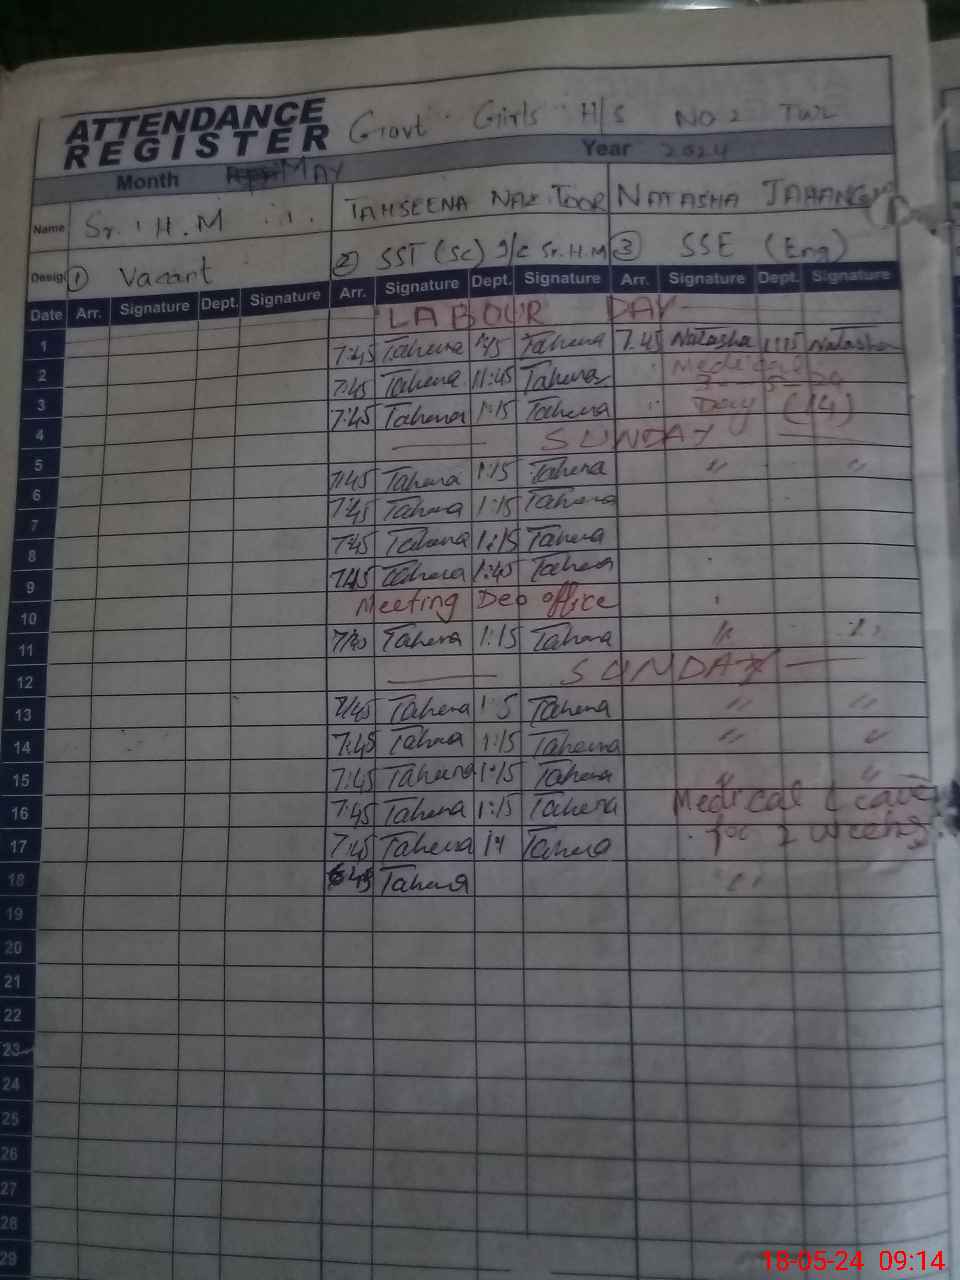 ATTENDANCE REGISTER Govt Girls H/S NO 2 TWL
Month MAY Year 2024
Name Sr. H.M TAHSEENA NAZ TOOR NATASHA JAHANGIR
Desig ① Vacant ② SST (Sc) I/C Sr. H.M ③ SSE (Eng)
Date Arr. Signature Dept. Signature Arr. Signature Dept. Signature Arr. Signature Dept. Signature
1 LABOUR DAY
2 7:45 Tahena Tahena 7:45 Natasha 1:15 Natasha
3 7:45 Tahena 11:45 Tahena Medical
4 7:45 Tahena 1:15 Tahena Day (14)
5 SUNDAY
6 7:45 Tahena 1:15 Tahena " "
7 7:45 Tahena 1:15 Tahena
8 7:45 Tahena 1:15 Tahena
9 7:45 Tahena 1:45 Tahena
10 Meeting Deo office
11 7:40 Tahena 1:15 Tahena " "
12 SUNDAY
13 7:45 Tahena 1:5 Tahena " "
14 7:45 Tahena 1:15 Tahena " "
15 7:45 Tahena 1:15 Tahena " "
16 7:45 Tahena 1:15 Tahena Medical Leave
17 7:45 Tahena Tahena for 2 weeks
18 Tahena "
19
20
21
22
23
24
25
26
27
28
29
18-05-24 09:14